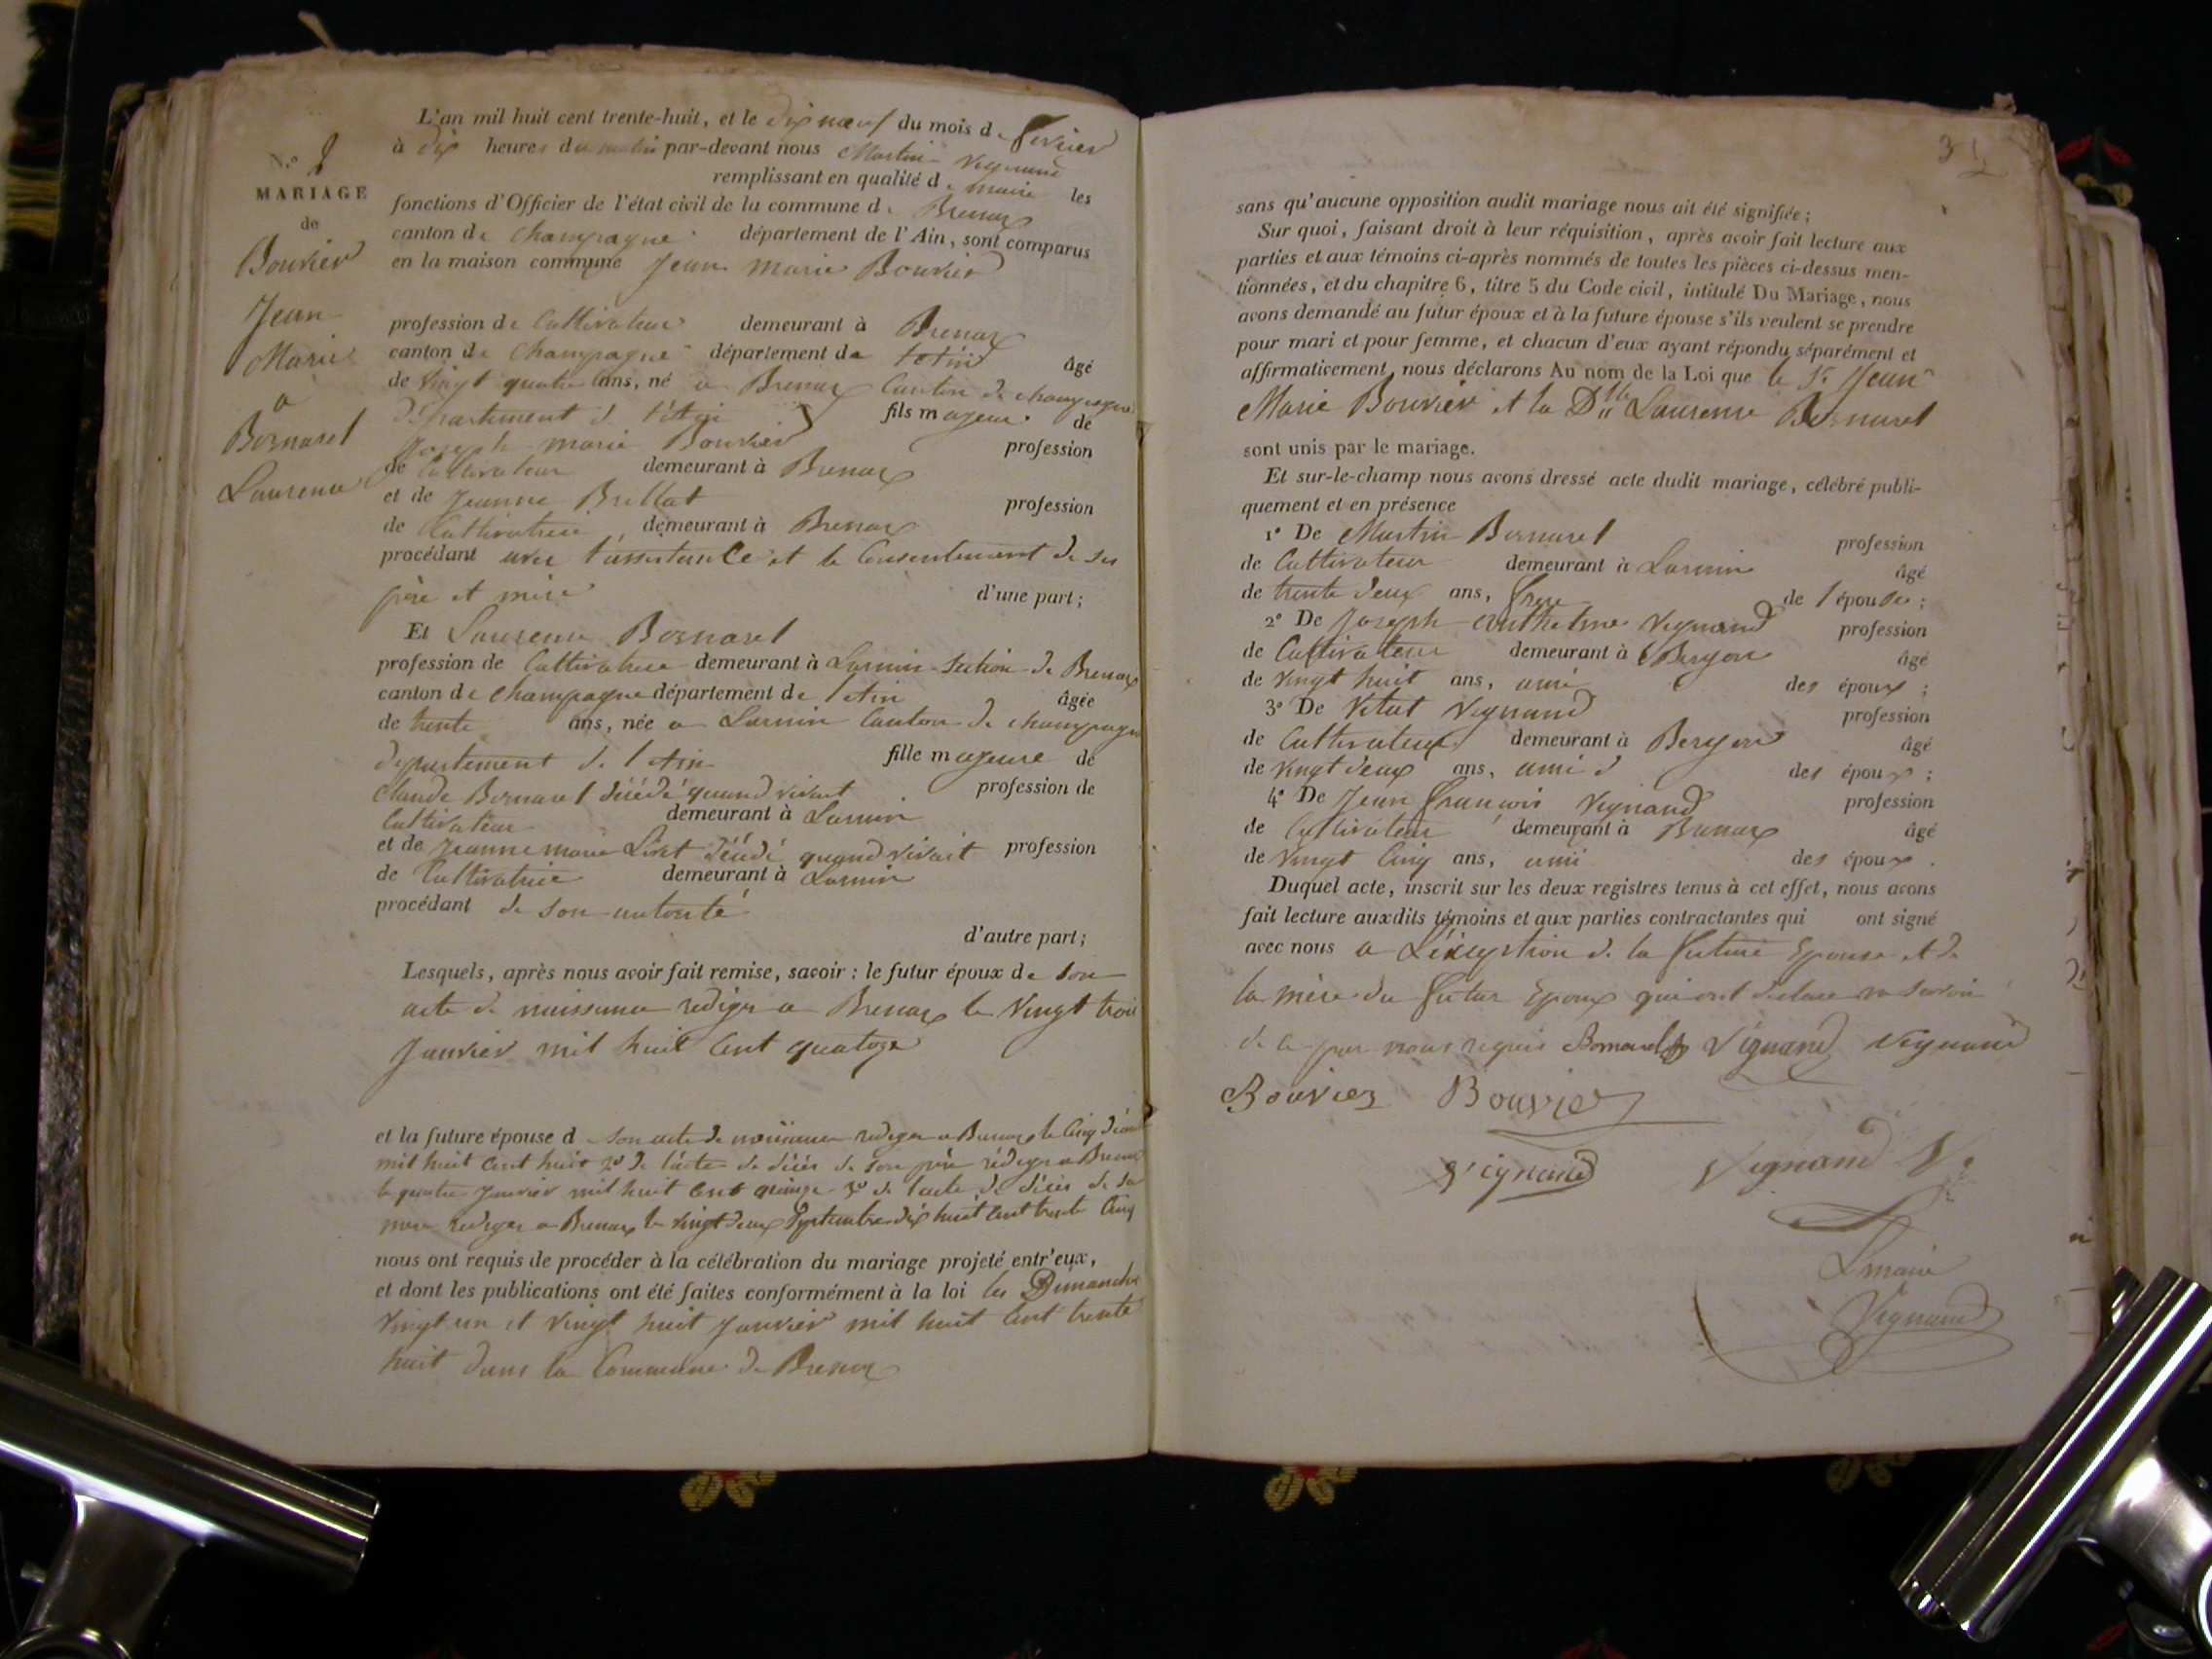 L'an mil huit cent trente-huit, et le dix neuf du mois de fevrier
à dix heures du matin par-devant nous Martin Vignand
remplissant en qualité de maire les
fonctions d'Officier de l'état civil de la commune de Brenaz
canton de Champagne département de l'Ain, sont comparus
en la maison commune Jean Marie Bouvier
N.º 2
MARIAGE
de
Bouvier
Jean
Marie
a
Bornarel
Laurence
profession de Cultivateur demeurant à Brenaz
canton de Champagne département de l'Ain âgé
de vingt quatre ans, né a Brenaz Canton de champagne
département de l'Ain fils majeur de
Joseph marie Bouvier profession
de Cultivateur demeurant à Brenaz
et de Jeanne Brillat profession
de Cultivatrice demeurant à Brenaz
procédant avec l'assistance et le Consentement de ses
père et mère d'une part;
Et Laurence Bornarel
profession de Cultivatrice demeurant à Lormin Section de Brenaz
canton de champagne département de l'Ain âgée
de trente ans, née a Lormin Canton de champagne
département de l'Ain fille majeure de
Claude Bornarel décédé quand vivait profession de
Cultivateur demeurant à Lormin
et de Jeanne marie décédé quand vivait profession
de Cultivatrice demeurant à Lormin
procédant de son autorité
d'autre part;
Lesquels, après nous avoir fait remise, savoir: le futur époux de son
acte de naissance rediger a Brenaz le Vingt trois
Janvier mil huit Cent quatoze
et la future épouse d son acte de naissance rediger a Brenaz le Cinq
mil huit Cent huit 2º de l'acte de décès de son père rédiger a Brenaz
le quatre Janvier mil huit Cent quinze 3º de l'acte de décès de sa
mere rediger a Brenaz le vingt deux Septembre dix huit Cent trente Cinq
nous ont requis de procéder à la célébration du mariage projeté entr'eux,
et dont les publications ont été faites conformément à la loi les Dimanche
Vingt un et Vingt huit Janvier mil huit Cent trente
huit dans la Commune de Brenaz
sans qu'aucune opposition audit mariage nous ait été signifiée;
Sur quoi, faisant droit à leur réquisition, après avoir fait lecture aux
parties et aux témoins ci-après nommés de toutes les pièces ci-dessus men-
tionnées, et du chapitre 6, titre 5 du Code civil, intitulé Du Mariage, nous
avons demandé au futur époux et à la future épouse s'ils veulent se prendre
pour mari et pour femme, et chacun d'eux ayant répondu séparément et
affirmativement, nous déclarons Au nom de la Loi que le Sr Jean
Marie Bouvier et la Dlle Laurence Bornarel
sont unis par le mariage.
Et sur-le-champ nous avons dressé acte dudit mariage, célébré publi-
quement et en présence
1º De Martin Bornarel profession
de Cultivateur demeurant à Lormin âgé
de trente deux ans, frere de l'épouse;
2º De Joseph Anthelme Vignand profession
de Cultivateur demeurant à Bergon âgé
de Vingt huit ans, ami des époux;
3º De Vital Vignand profession
de Cultivateur demeurant à Bergon âgé
de Vingt deux ans, ami des époux;
4º De Jean François Vignand profession
de Cultivateur demeurant à Brenaz âgé
de Vingt Cinq ans, ami des époux.
Duquel acte, inscrit sur les deux registres tenus à cet effet, nous avons
fait lecture auxdits témoins et aux parties contractantes qui ont signé
avec nous a L'éxception de la future Epouse et de
la mère du futur Epoux qui ont declare ne savoir
de ce par nous requis Bornarel Vignand Vignand
Bouvier Bouvier
Vignand Vignand V.
L maire
Vignand